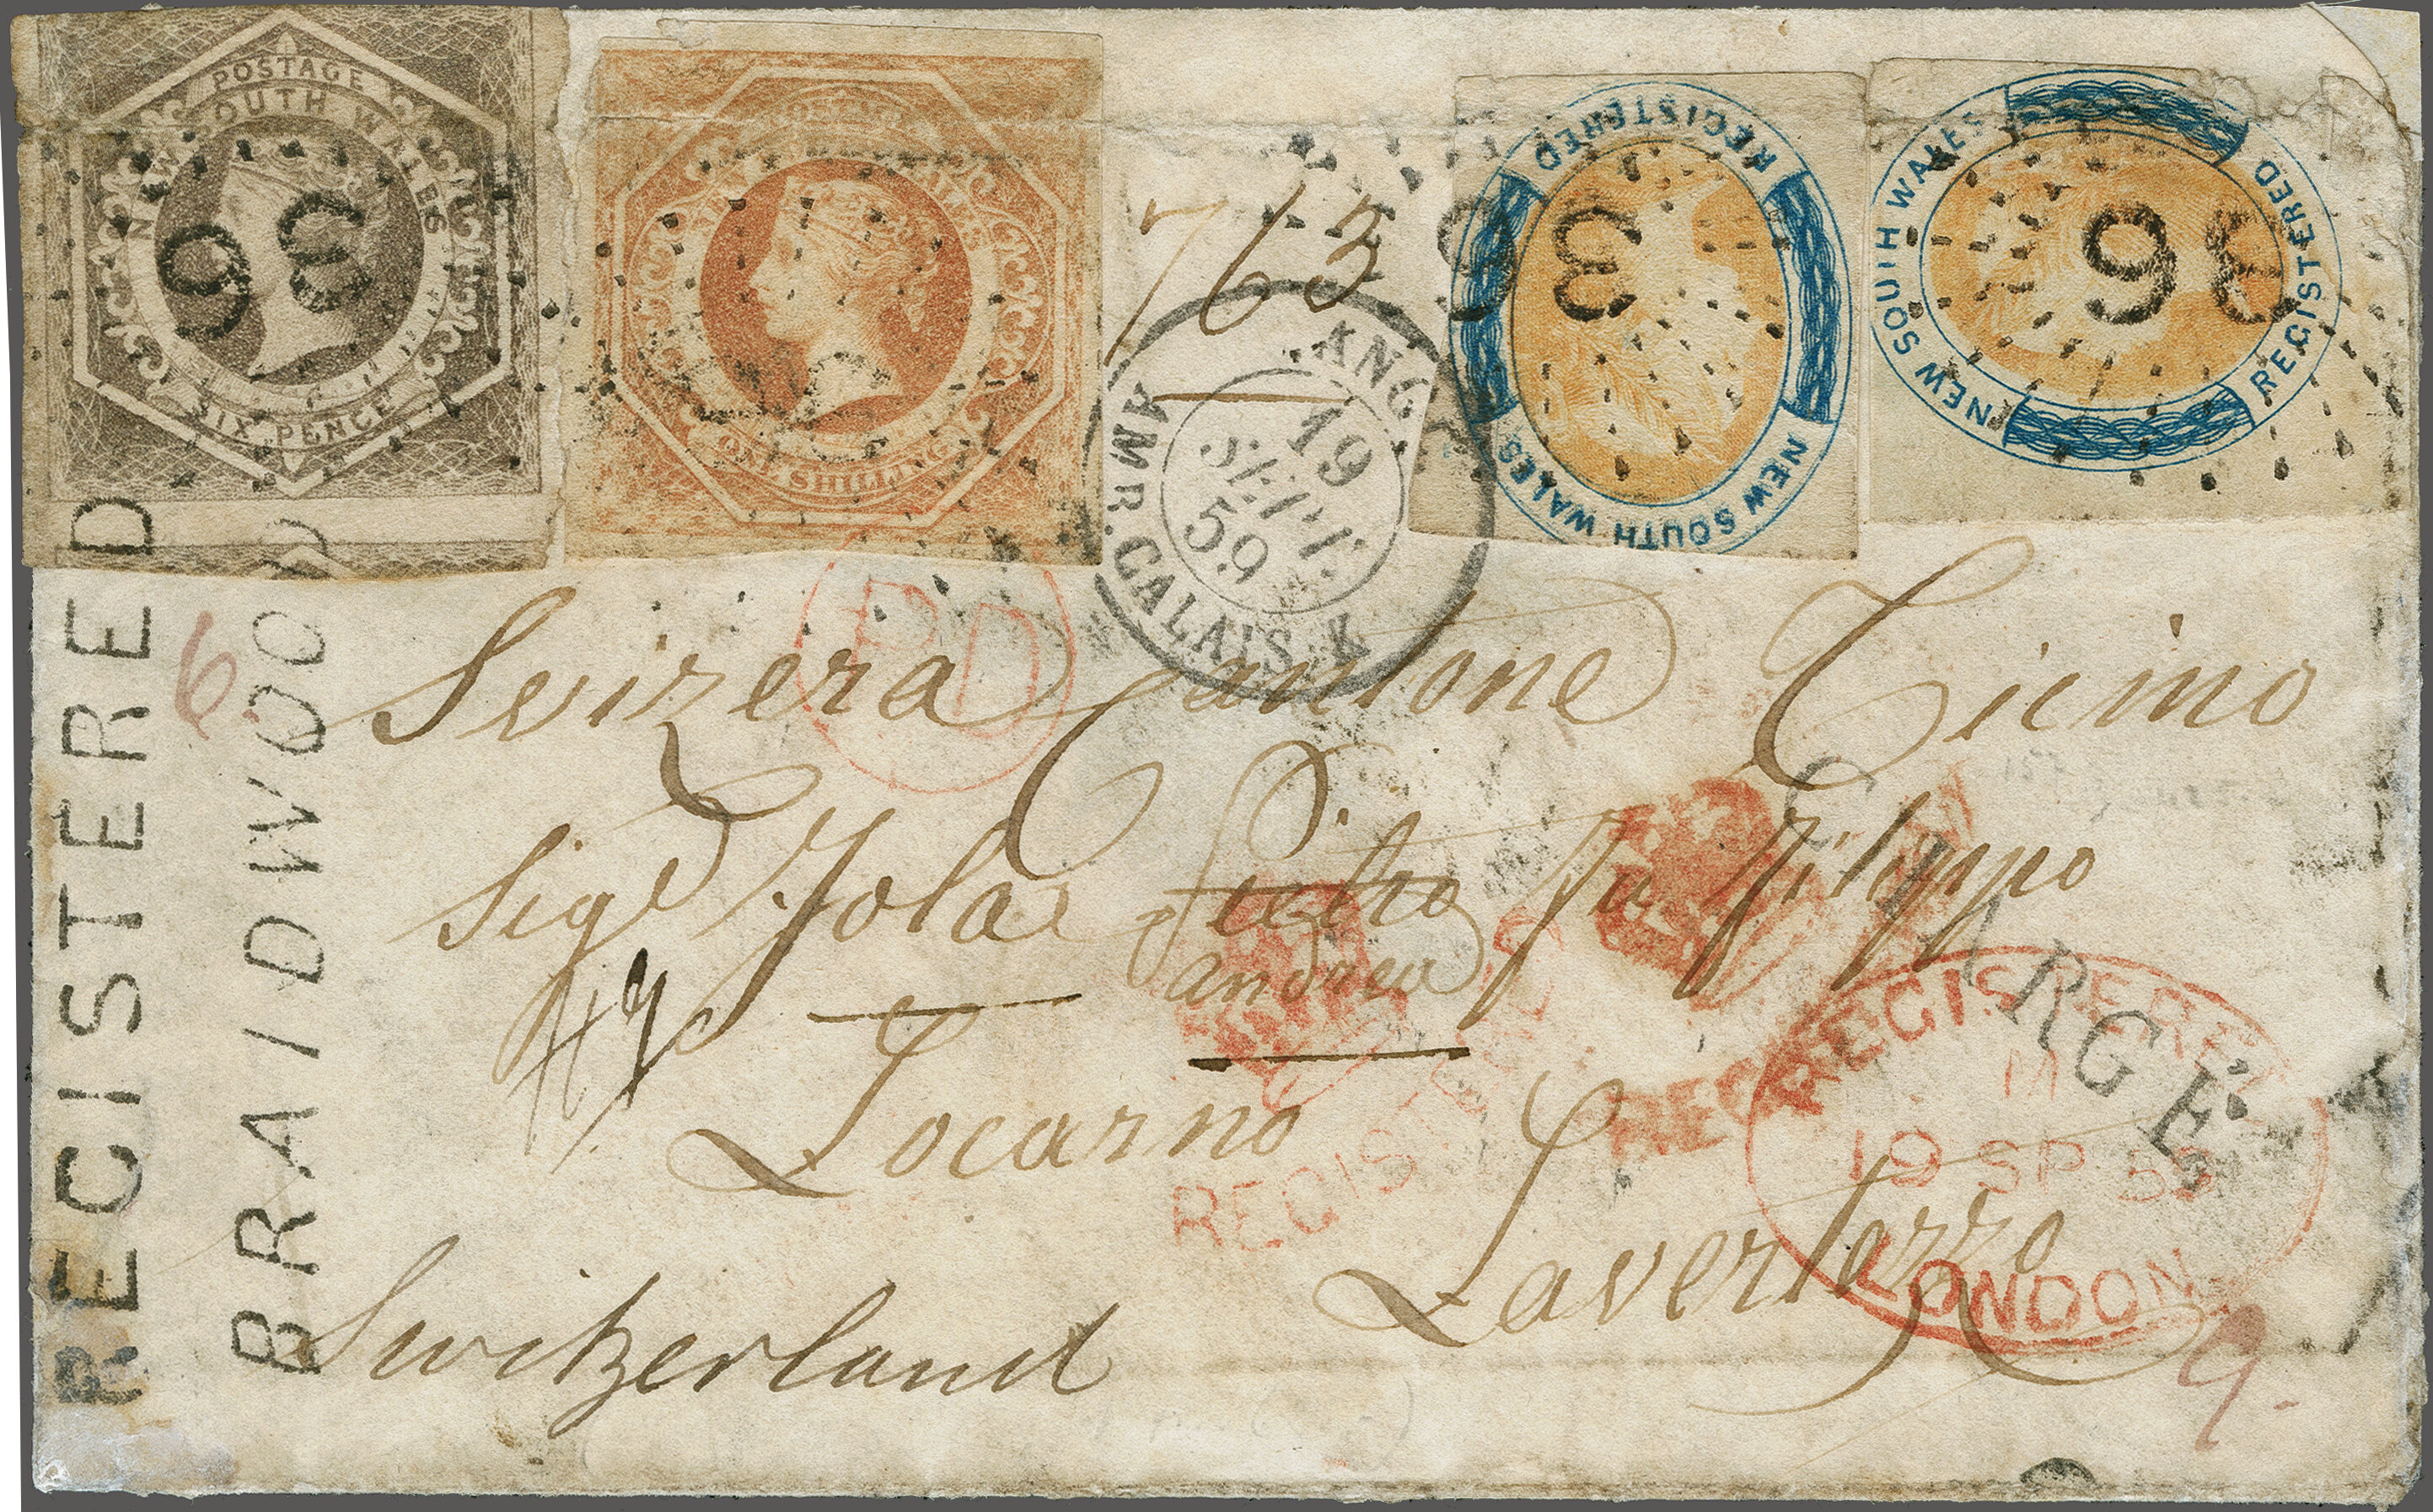 POSTAGE
NEW SOUTH WALES
SIX PENCE
98
ONE SHILLING
763
REGISTERED
NEW SOUTH WALES
8
NEW SOUTH WALES
REGISTERED
98
ANGL.
AMB. CALAIS
19
SEPT.
59
PD
REGISTERED
BRAIDWOOD
6
Svizera Cantone Ticino
Sigr Jola Pietro fu Filippo
Andrea
Locarno
Lavertezzo
Switzerland
CHARGÉ
REGISTERED
REGISTERED
M
19 SP 59
LONDON
REGISTERED
9